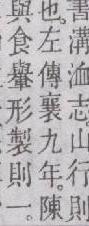 書溝洫志。山行則
也。左傳襄九年。陳
與食輂形製則一。